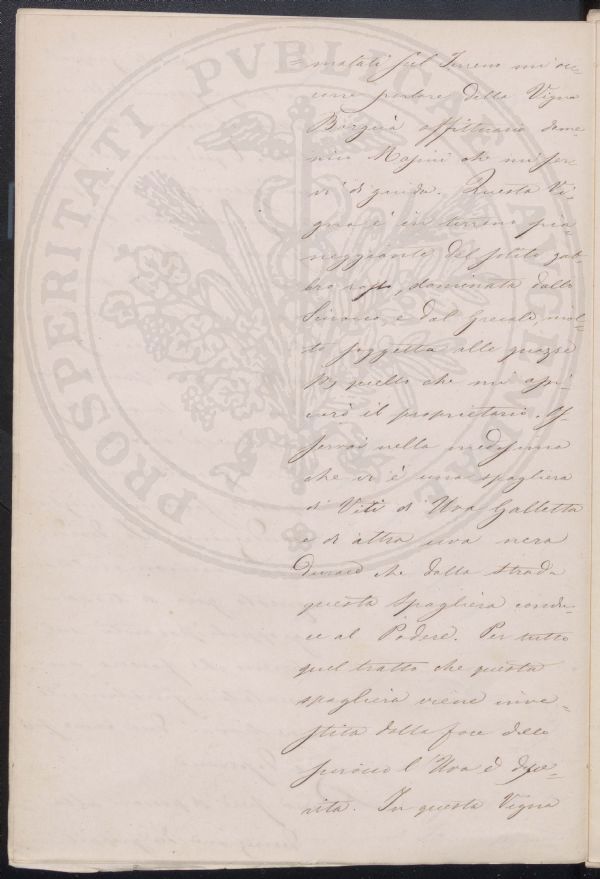 PROSPERITATI PVBLICAE AVGENDAE
= malati sul Terreno mi oc=
corre parlare della Vigna
Borgià affittuario dome=
nico Masini che mi ser=
vì di guida. Questa Vi=
gna è in terreno pia=
neggiante del solito gab=
bro rosso, dominata dallo
Scirocco, e dal Grecale, mol=
to soggetta alle guazze
p quello che mi assi=
curò il proprietario. Os=
servai nella medesima
che vi è una spagliera
di Viti di Uva Galletta
e di altra uva nera
che dalla strada
questa Spagliera condu=
ce al Podere. Per tutto
quel tratto che questa
spagliera viene inve=
stita dalla foce dello
scirocco l'Uva è
In questa Vigna